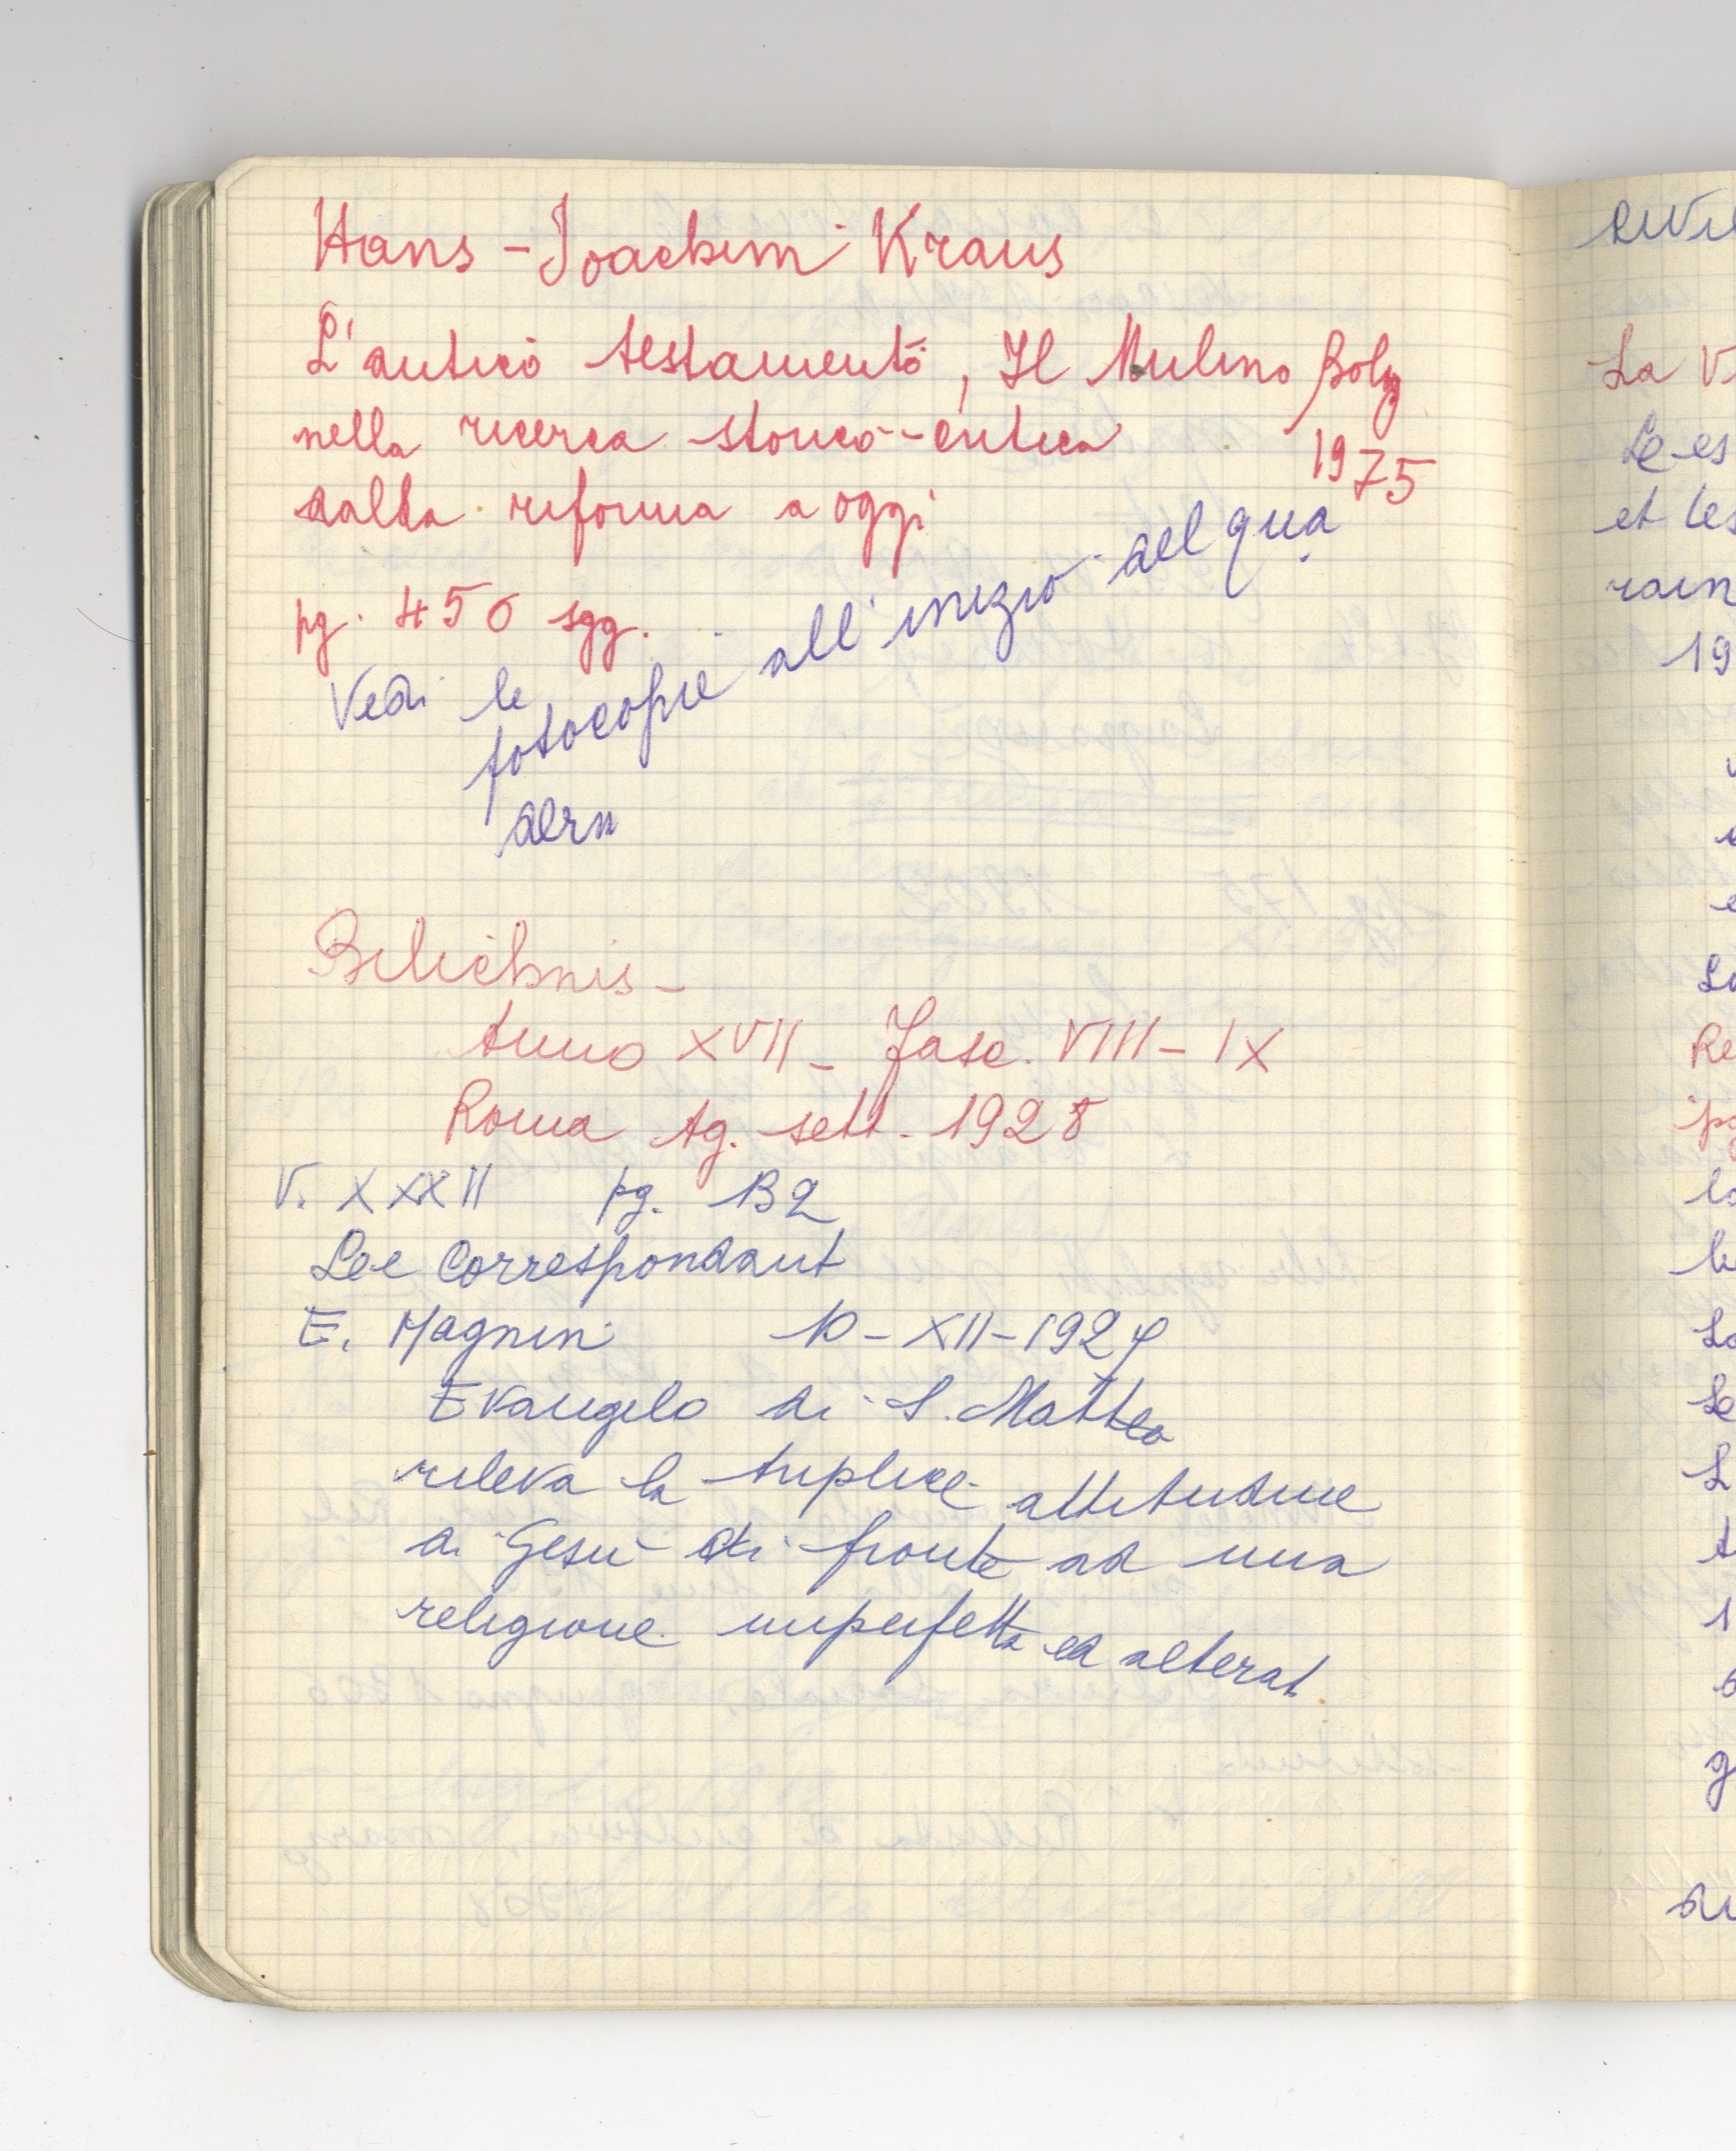 Hans-Joachim Kraus
L'antico testamento, Il Mulino Bolg
nella ricerca storico-critica 1975
dalla riforma a oggi
pg. 450 sgg.
Vedi le
fotocopie all'inizio del qua
dern
Bilichnis -
Anno XVII - Fasc. VIII - IX
Roma Ag. sett. 1928
V. XXXII pg. 132
Le Correspondant
E. Magnin 10-XII-1927
Evangelo di S. Matteo
rileva la triplice attitudine
di Gesù di fronte ad una
religione imperfetta ed alterat
La V
et les
rain
19